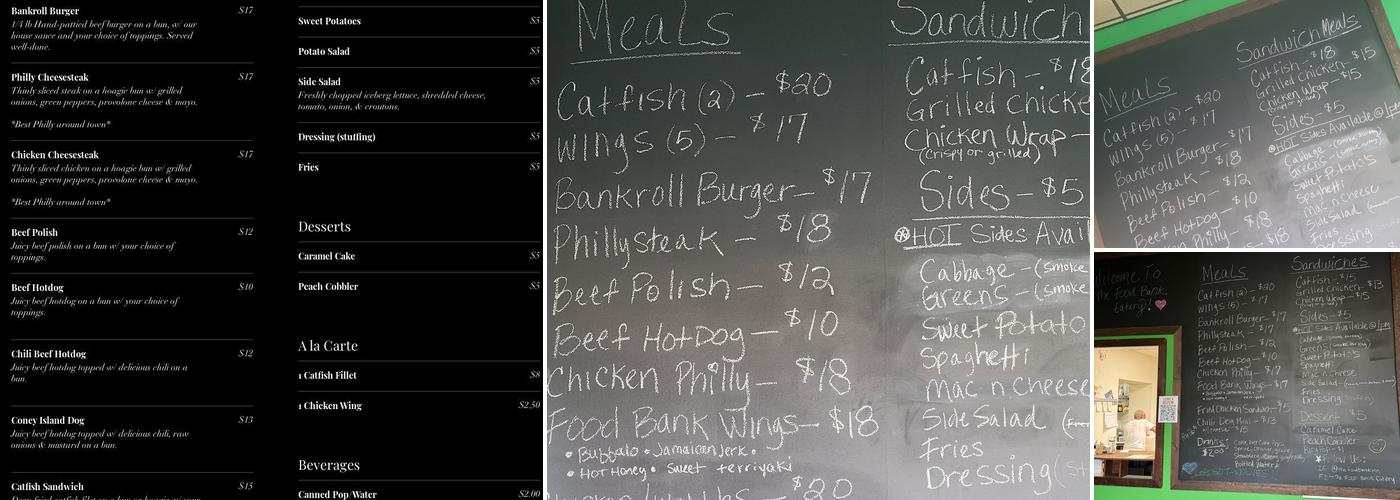 Bankroll Burger $17
1/4 lb Hand-pattied beef burger on a bun, w/ our
house sauce and your choice of toppings. Served
well-done.
Philly Cheesesteak $17
Thinly sliced steak on a hoagie bun w/ grilled
onions, green peppers, provolone cheese & mayo.
*Best Philly around town*
Chicken Cheesesteak $17
Thinly sliced chicken on a hoagie bun w/ grilled
onions, green peppers, provolone cheese & mayo.
*Best Philly around town*
Beef Polish $12
Juicy beef polish on a bun w/ your choice of
toppings.
Beef Hotdog $10
Juicy beef hotdog on a bun w/ your choice of
toppings.
Chili Beef Hotdog $12
Juicy beef hotdog topped w/ delicious chili on a
bun.
Coney Island Dog $13
Juicy beef hotdog topped w/ delicious chili, raw
onions & mustard on a bun.
Catfish Sandwich $15
Sweet Potatoes $5
Potato Salad $5
Side Salad $5
Freshly chopped iceberg lettuce, shredded cheese,
tomato, onion, & croutons.
Dressing (stuffing) $5
Fries $5
Desserts
Caramel Cake $5
Peach Cobbler $5
A la Carte
1 Catfish Fillet $8
1 Chicken Wing $2.50
Beverages
Canned Pop/Water $2.00
Meals
Catfish (2) - $20
Wings (5) - $17
Bankroll Burger - $17
Phillysteak - $18
Beef Polish - $12
Beef HotDog - $10
Chicken Philly - $18
Food Bank Wings - $18
• Buffalo • Jamaican Jerk •
• Hot Honey • Sweet terriyaki
$20
Sandwich
Catfish - $18
Grilled Chicke
Chicken Wrap -
(crispy or grilled)
Sides - $5
HOT Sides Avail
Cabbage - (smoke
Greens - (smoke
Sweet Potato
Spaghetti
Mac n Cheese
Side Salad
Fries
Dressing (St
Meals
Catfish (2) - $20
Wings (5) - $17
Bankroll Burger - $17
Phillysteak - $18
Beef Polish - $12
Beef HotDog - $10
Chicken Philly - $18
Sandwich Meals
Catfish - $18
Grilled Chicken - $15
Chicken Wrap - $15
(crispy or grilled)
Sides - $5
HOT Sides Available @ 1pm
Cabbage
Greens
Sweet Potatoes
Spaghetti
Mac n Cheese
Side Salad
Dressing
Welcome To
The Food Bank
Eatery!
Meals
Catfish (2) - $20
Wings (5) - $17
Bankroll Burger - $17
Phillysteak - $17
Beef Polish - $12
Beef HotDog - $10
Chicken Philly - $17
Food Bank Wings - $17
Fried Chicken Sandwich - $15
Chili Dog Meal - $13
Drinks:
$2.00
Bottled Water
Sandwiches
Catfish - $15
Grilled Chicken - $13
Chicken Wrap - $15
Sides - $5
HOT Sides Available @ 1pm
Cabbage
Greens
Sweet Potato's
Spaghetti
Mac n Cheese
Side Salad
Fries
Dressing
Dessert $5
Caramel Cake
Peach Cobbler
Follow Us: